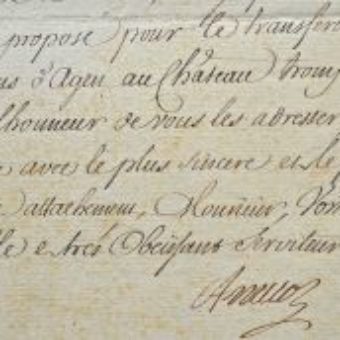 propose pour le transfero
us d'Agen au Château tromp
lhonneur de vous les adresser
e avec le plus sincere et le p
e attachement, Monsieur, Vom
lle e trés Obéissant Serviteur